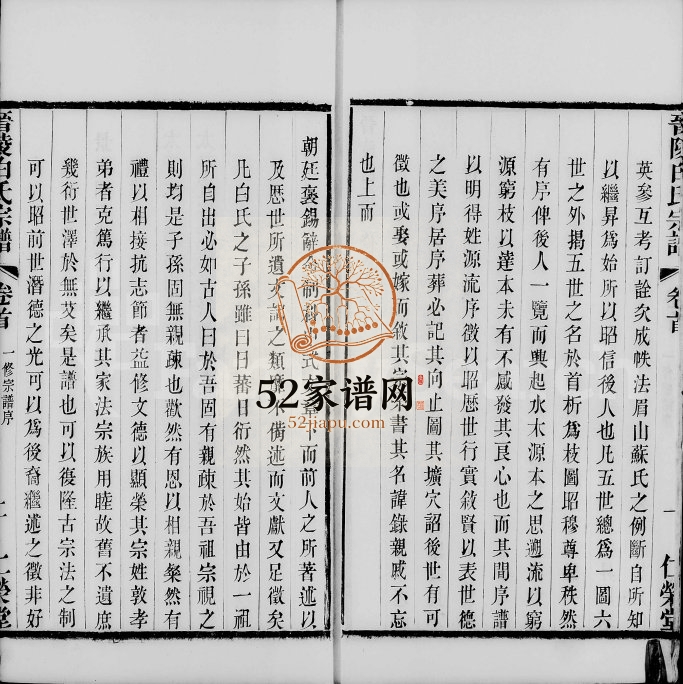 英參互考訂詮次成帙法眉山蘇氏之例斷自所知
以繼昇爲始所以昭信後人也凡五世總爲一圖六
世之外揭五世之名於首析爲枝圖昭穆尊卑秩然
有序俾後人一覽而興起水木源本之思遡流以窮
源窮枝以達本未有不感發其良心也而其間序譜
以明得姓源流序徵以昭歷世行實敘賢以表世德
之美序居序葬必記其向止圖其壙穴詔後世有可
徵也或娶或嫁而敘其家
書其名諱錄親戚不忘
也上而
仁榮堂
朝廷褒錫辭
制
式
下而前人之所著述以
及歷世所遺文
之類
不備述而文獻又足徵矣
凡白氏之子子孫雖曰日蕃日衍然其始皆由於一祖
所自出必如古人曰於吾固有親疎於吾祖宗視之
則均是子孫固無親疎也歡然有恩以相親粲然有
禮以相接抗志節者益修文德以顯榮其宗姓敦孝
弟者克篤行以繼承其家法宗族用睦故舊不遺庶
幾衍世澤於無艾矣是譜也可以復隆古宗法之制
可以昭前世潛德之光可以爲後裔繼述之徵非好
晉陵白氏宗譜
卷首
一修宗譜序
52家谱网
52jiapu.com